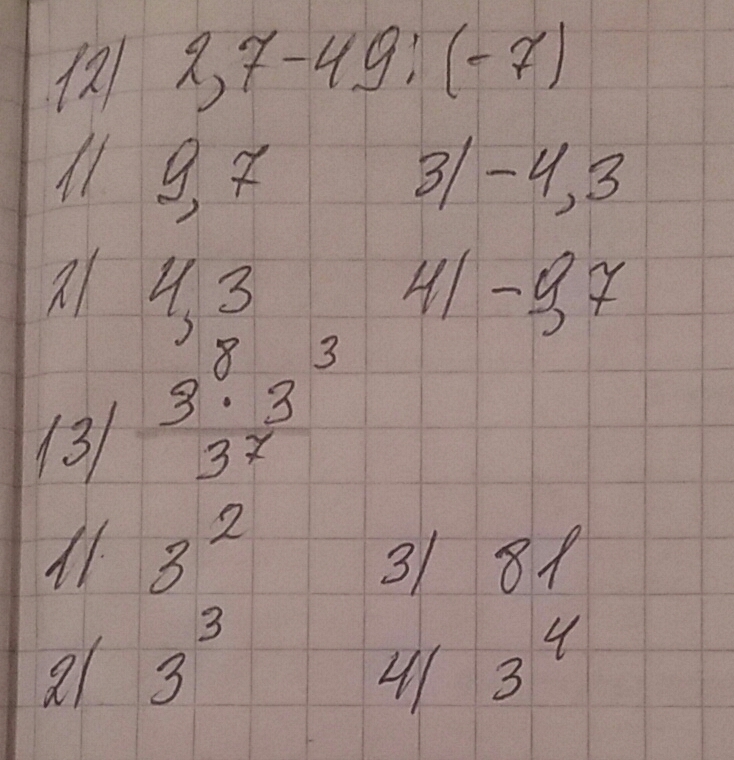 12) 2,7-49:(-7)
1) 9,7 3) -4,3
2) 4,3 4) -9,7
13) 3⁸ · 3³
3⁷
1) 3² 3) 81
2) 3³ 4) 3⁴